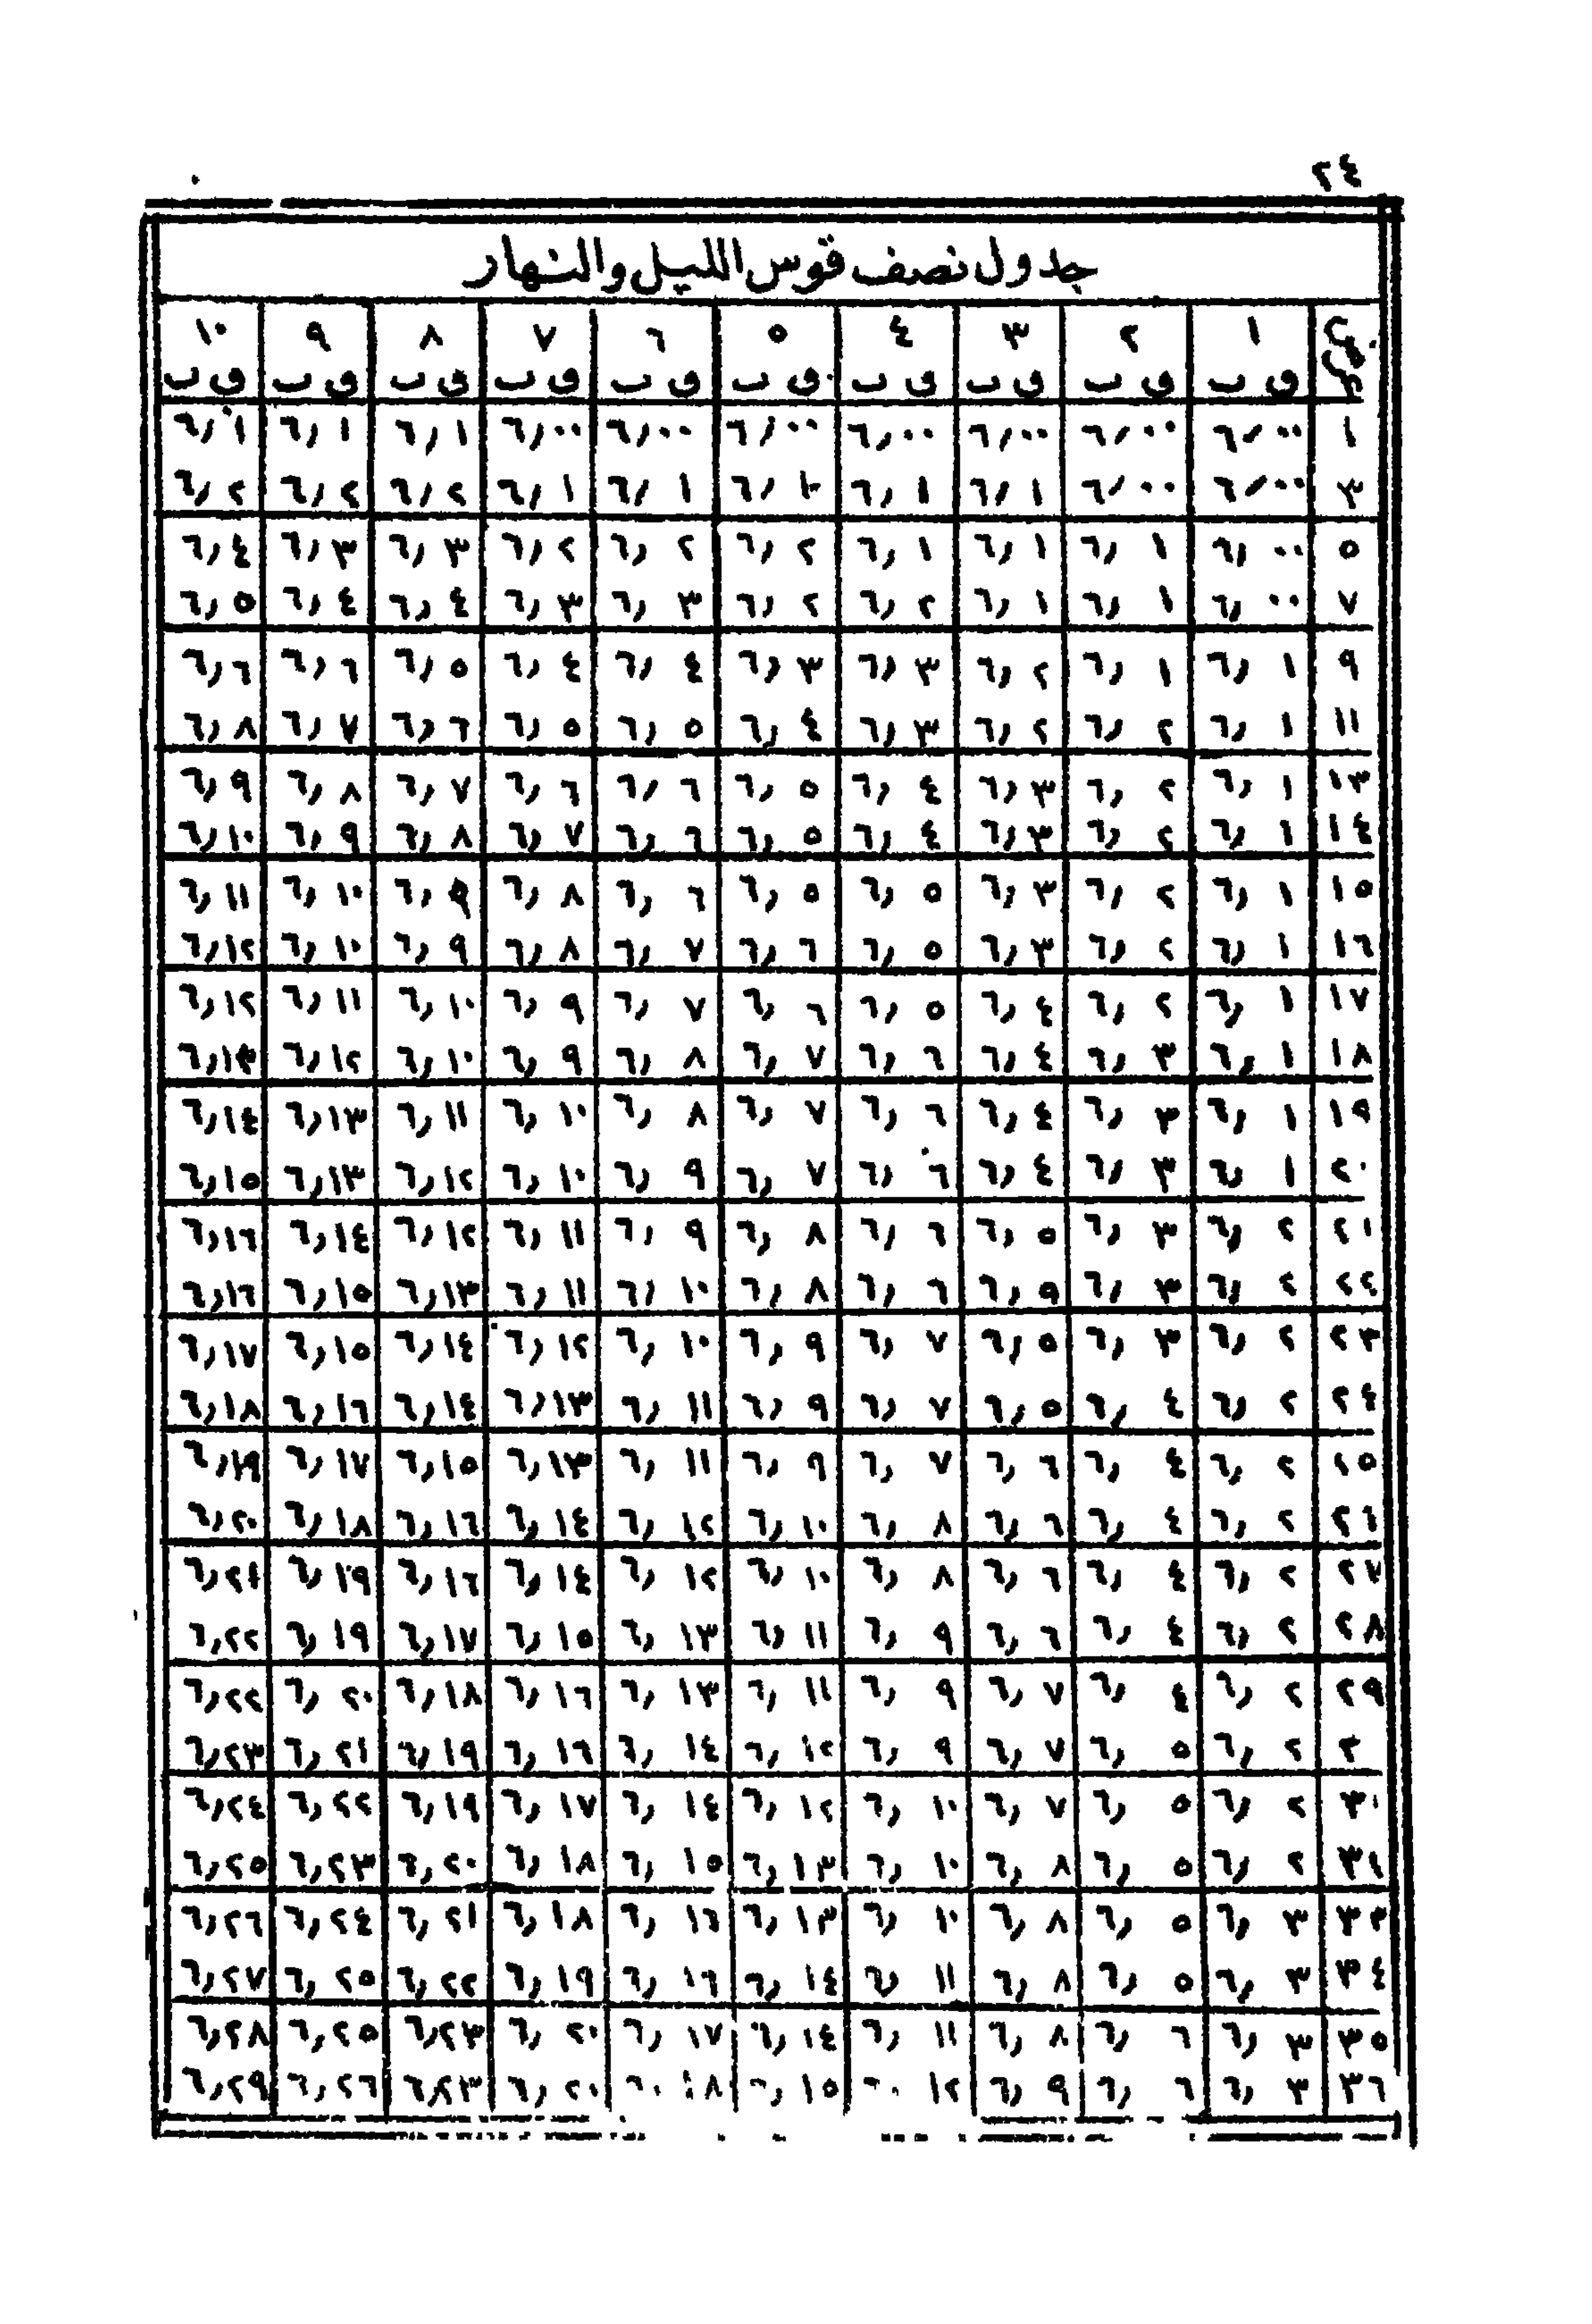 ٢٤
جدول نصف قوس الليل والنهار
١ ٢ ٣ ٤ ٥ ٦ ٧ ٨ ٩ ١٠
ق ب ق ب ق ب ق ب ق ب ق ب ق ب ق ب ق ب ق ب
١ ٦,٠٠ ٦,٠٠ ٦,٠٠ ٦,٠٠ ٦,٠٠ ٦,٠٠ ٦,٠٠ ٦,١ ٦,١ ٦,١
٣ ٦,٠٠ ٦,٠٠ ٦,١ ٦,١ ٦,١ ٦,١ ٦,١ ٦,٢ ٦,٢ ٦,٢
٥ ٦,٠٠ ٦,١ ٦,١ ٦,١ ٦,٢ ٦,٢ ٦,٢ ٦,٣ ٦,٣ ٦,٤
٧ ٦,٠٠ ٦,١ ٦,١ ٦,٢ ٦,٢ ٦,٣ ٦,٣ ٦,٤ ٦,٤ ٦,٥
٩ ٦,١ ٦,١ ٦,٢ ٦,٣ ٦,٣ ٦,٤ ٦,٤ ٦,٥ ٦,٦ ٦,٦
١١ ٦,١ ٦,٢ ٦,٢ ٦,٣ ٦,٤ ٦,٥ ٦,٥ ٦,٦ ٦,٧ ٦,٨
١٣ ٦,١ ٦,٢ ٦,٣ ٦,٤ ٦,٥ ٦,٦ ٦,٦ ٦,٧ ٦,٨ ٦,٩
١٤ ٦,١ ٦,٢ ٦,٣ ٦,٤ ٦,٥ ٦,٦ ٦,٧ ٦,٨ ٦,٩ ٦,١٠
١٥ ٦,١ ٦,٢ ٦,٣ ٦,٥ ٦,٥ ٦,٦ ٦,٨ ٦,٩ ٦,١٠ ٦,١١
١٦ ٦,١ ٦,٢ ٦,٣ ٦,٥ ٦,٦ ٦,٧ ٦,٨ ٦,٩ ٦,١٠ ٦,١٢
١٧ ٦,١ ٦,٢ ٦,٤ ٦,٥ ٦,٦ ٦,٧ ٦,٩ ٦,١٠ ٦,١١ ٦,١٢
١٨ ٦,١ ٦,٣ ٦,٤ ٦,٦ ٦,٧ ٦,٨ ٦,٩ ٦,١٠ ٦,١٢ ٦,١٣
١٩ ٦,١ ٦,٣ ٦,٤ ٦,٦ ٦,٧ ٦,٨ ٦,١٠ ٦,١١ ٦,١٣ ٦,١٤
٢٠ ٦,١ ٦,٣ ٦,٤ ٦,٦ ٦,٧ ٦,٩ ٦,١٠ ٦,١٢ ٦,١٣ ٦,١٥
٢١ ٦,٢ ٦,٣ ٦,٥ ٦,٦ ٦,٨ ٦,٩ ٦,١١ ٦,١٢ ٦,١٤ ٦,١٦
٢٢ ٦,٢ ٦,٣ ٦,٩ ٦,٦ ٦,٨ ٦,١٠ ٦,١١ ٦,١٣ ٦,١٥ ٦,١٦
٢٣ ٦,٢ ٦,٣ ٦,٥ ٦,٧ ٦,٩ ٦,١٠ ٦,١٢ ٦,١٤ ٦,١٥ ٦,١٧
٢٤ ٦,٢ ٦,٤ ٦,٥ ٦,٧ ٦,٩ ٦,١١ ٦,١٣ ٦,١٤ ٦,١٦ ٦,١٨
٢٥ ٦,٢ ٦,٤ ٦,٦ ٦,٧ ٦,٩ ٦,١١ ٦,١٣ ٦,١٥ ٦,١٧ ٦,١٩
٢٦ ٦,٢ ٦,٤ ٦,٦ ٦,٨ ٦,١٠ ٦,١٢ ٦,١٤ ٦,١٦ ٦,١٨ ٦,٢٠
٢٧ ٦,٢ ٦,٤ ٦,٦ ٦,٨ ٦,١٠ ٦,١٢ ٦,١٤ ٦,١٦ ٦,١٩ ٦,٢١
٢٨ ٦,٢ ٦,٤ ٦,٦ ٦,٩ ٦,١١ ٦,١٣ ٦,١٥ ٦,١٧ ٦,١٩ ٦,٢٢
٢٩ ٦,٢ ٦,٤ ٦,٧ ٦,٩ ٦,١١ ٦,١٣ ٦,١٦ ٦,١٨ ٦,٢٠ ٦,٢٢
٣ ٦,٢ ٦,٥ ٦,٧ ٦,٩ ٦,١٢ ٦,١٤ ٦,١٦ ٦,١٩ ٦,٢١ ٦,٢٣
٣١ ٦,٢ ٦,٥ ٦,٧ ٦,١٠ ٦,١٢ ٦,١٤ ٦,١٧ ٦,١٩ ٦,٢٢ ٦,٢٤
٣٢ ٦,٢ ٦,٥ ٦,٨ ٦,١٠ ٦,١٣ ٦,١٥ ٦,١٨ ٦,٢٠ ٦,٢٣ ٦,٢٥
٣٣ ٦,٣ ٦,٥ ٦,٨ ٦,١٠ ٦,١٣ ٦,١٦ ٦,١٨ ٦,٢١ ٦,٢٤ ٦,٢٦
٣٤ ٦,٣ ٦,٥ ٦,٨ ٦,١١ ٦,١٤ ٦,١٦ ٦,١٩ ٦,٢٢ ٦,٢٥ ٦,٢٧
٣٥ ٦,٣ ٦,٦ ٦,٨ ٦,١١ ٦,١٤ ٦,١٧ ٦,٢٠ ٦,٢٣ ٦,٢٥ ٦,٢٨
٣٦ ٦,٣ ٦,٦ ٦,٩ ٦,١٢ ٦,١٥ ٦,١٨ ٦,٢٠ ٦,٢٣ ٦,٢٦ ٦,٢٩